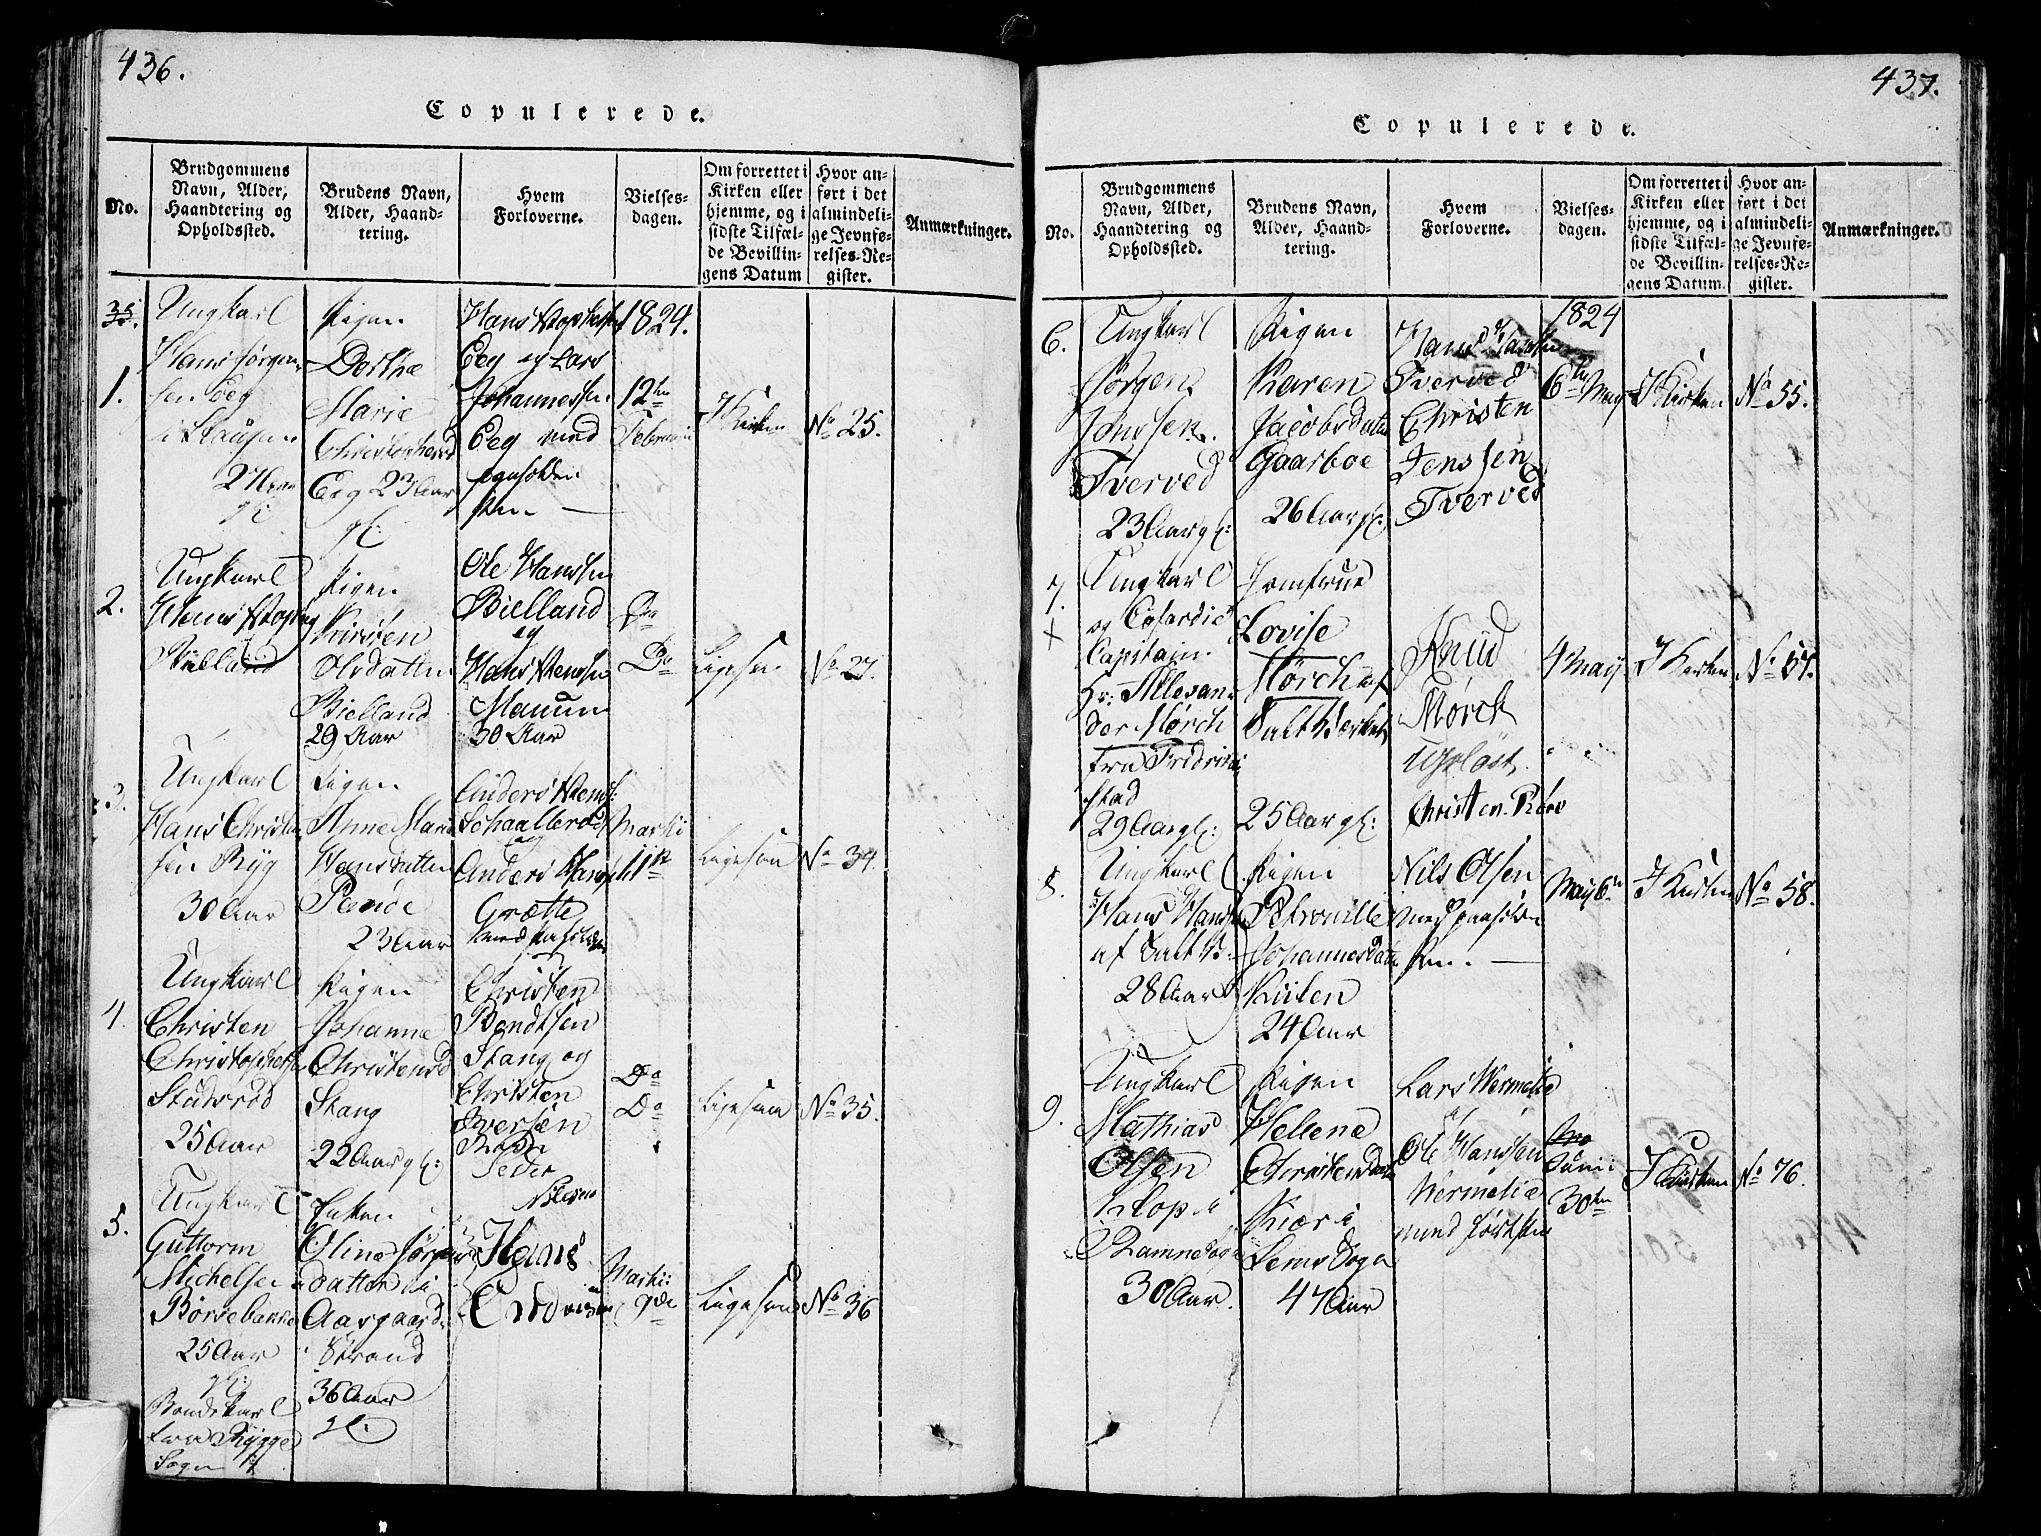 436.
Copulerede.
No.
Brudgommens
Navn, Alder,
Haandtering og
Opholdssted.
Brudens Navn,
Alder, Haand-
tering.
Hvem
Forloverne.
Vielses-
dagen.
Om forrettet i
Kirken eller
hjemme, og i
sidste Tilfæl-
de Bevillin-
gens Datum
Hvor an-
ført i det
almindeli-
ge Jevnfø-
relses-Re-
gister.
Anmærkninger.
35.
1.
Ungkarl
Hans Jørgen-
sen Eeg
i Slaugen
27 Aar
gl:
Pigen
Dorthe
Marie
Christophersd
Eeg 23 Aar
gl:
Hans
Eeg og Lars
Johannessen
Eeg med
paaholden
Pen
1824.
12te
Februari
I Kirken
No 25.
2.
Ungkarl
Bielland
Pigen
Kirsten
Olsdatter
Bielland
29 Aar
Ole Hanssen
Bielland
og
Manum
30 Aar
Do
Do
Ligesom
No 27.
3.
Ungkarl
Hans Christen
sen Ryg
30 Aar
Pigen
Anne Maria
Hansdatter
23 Aar
Anders
og
Anders
Grætte
med paaholden
Martii
11te
Ligesom
No 34.
4.
Ungkarl
Christen
Christophersen
25 Aar
Pigen
Johanne
Christensd
Stang
22 Aar gl:
Christen
Bendtsen
Stang og
Christen
Iversen
Do
Do
Ligesom
No 35.
5.
Ungkarl
Guttorm
Michelsen
25 Aar
gl:
Bondekarl
fra Rygge
Sogn
Enken
Oline Jørgens
datter
Aasgaard
Strand
36 Aar
gl:
Hans
Martii
9de
Ligesom
No 36
437.
Copulerede.
No.
Brudgommens
Navn, Alder,
Haandtering og
Opholdssted.
Brudens Navn,
Alder, Haand-
tering.
Hvem
Forloverne.
Vielses-
dagen.
Om forrettet i
Kirken eller
hjemme, og i
sidste Tilfæl-
de Bevillin-
gens Datum.
Hvor an-
ført i det
almindeli-
ge Jevnfø-
relses-Re-
gister.
Anmærkninger.
6.
Ungkarl
Jørgen
Jenssen
Tverved
23 Aar gl:
Pigen
Karen
Jacobsdatter
Gaarboe
26 Aar gl:
Hans
Tverved
Christen
Jenssen
Tverved
1824
6te May
I Kirken
No 55.
7.
Ungkarl
og Cofardie
Capitain
Hr: Allexan-
der Mørch
fra Fridrik
stad
29 Aar gl:
Jomfrue
Lovise
Mørch af
Saltværket
25 Aar gl:
Knud
Mørch
Christen Røre
4 May
I Kirken
No 57.
8.
Ungkarl
Hans Hanssen
af Salt V:
28 Aar
Pigen
Petronille
Johannesdatter
24 Aar
Nils Olsen
med paaholden
Pen.
May 6te
I Kirken
No 58.
9.
Ungkarl
Mathias
Olsen
Klop i
Ramnes Sogn
30 Aar.
Pigen
Helene
Christensdatter
Kiær i
Sems Sogn
47 Aar
Lars Wermelie
Ole Hanssen
Wermelie
Juni
30te
I Kirken
No 76.